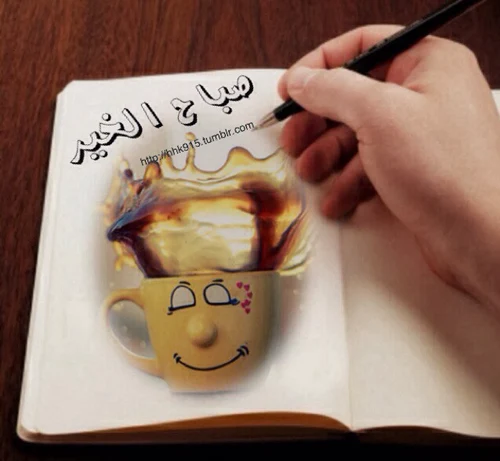 صباح الخير
http://hhk915.tumblr.com